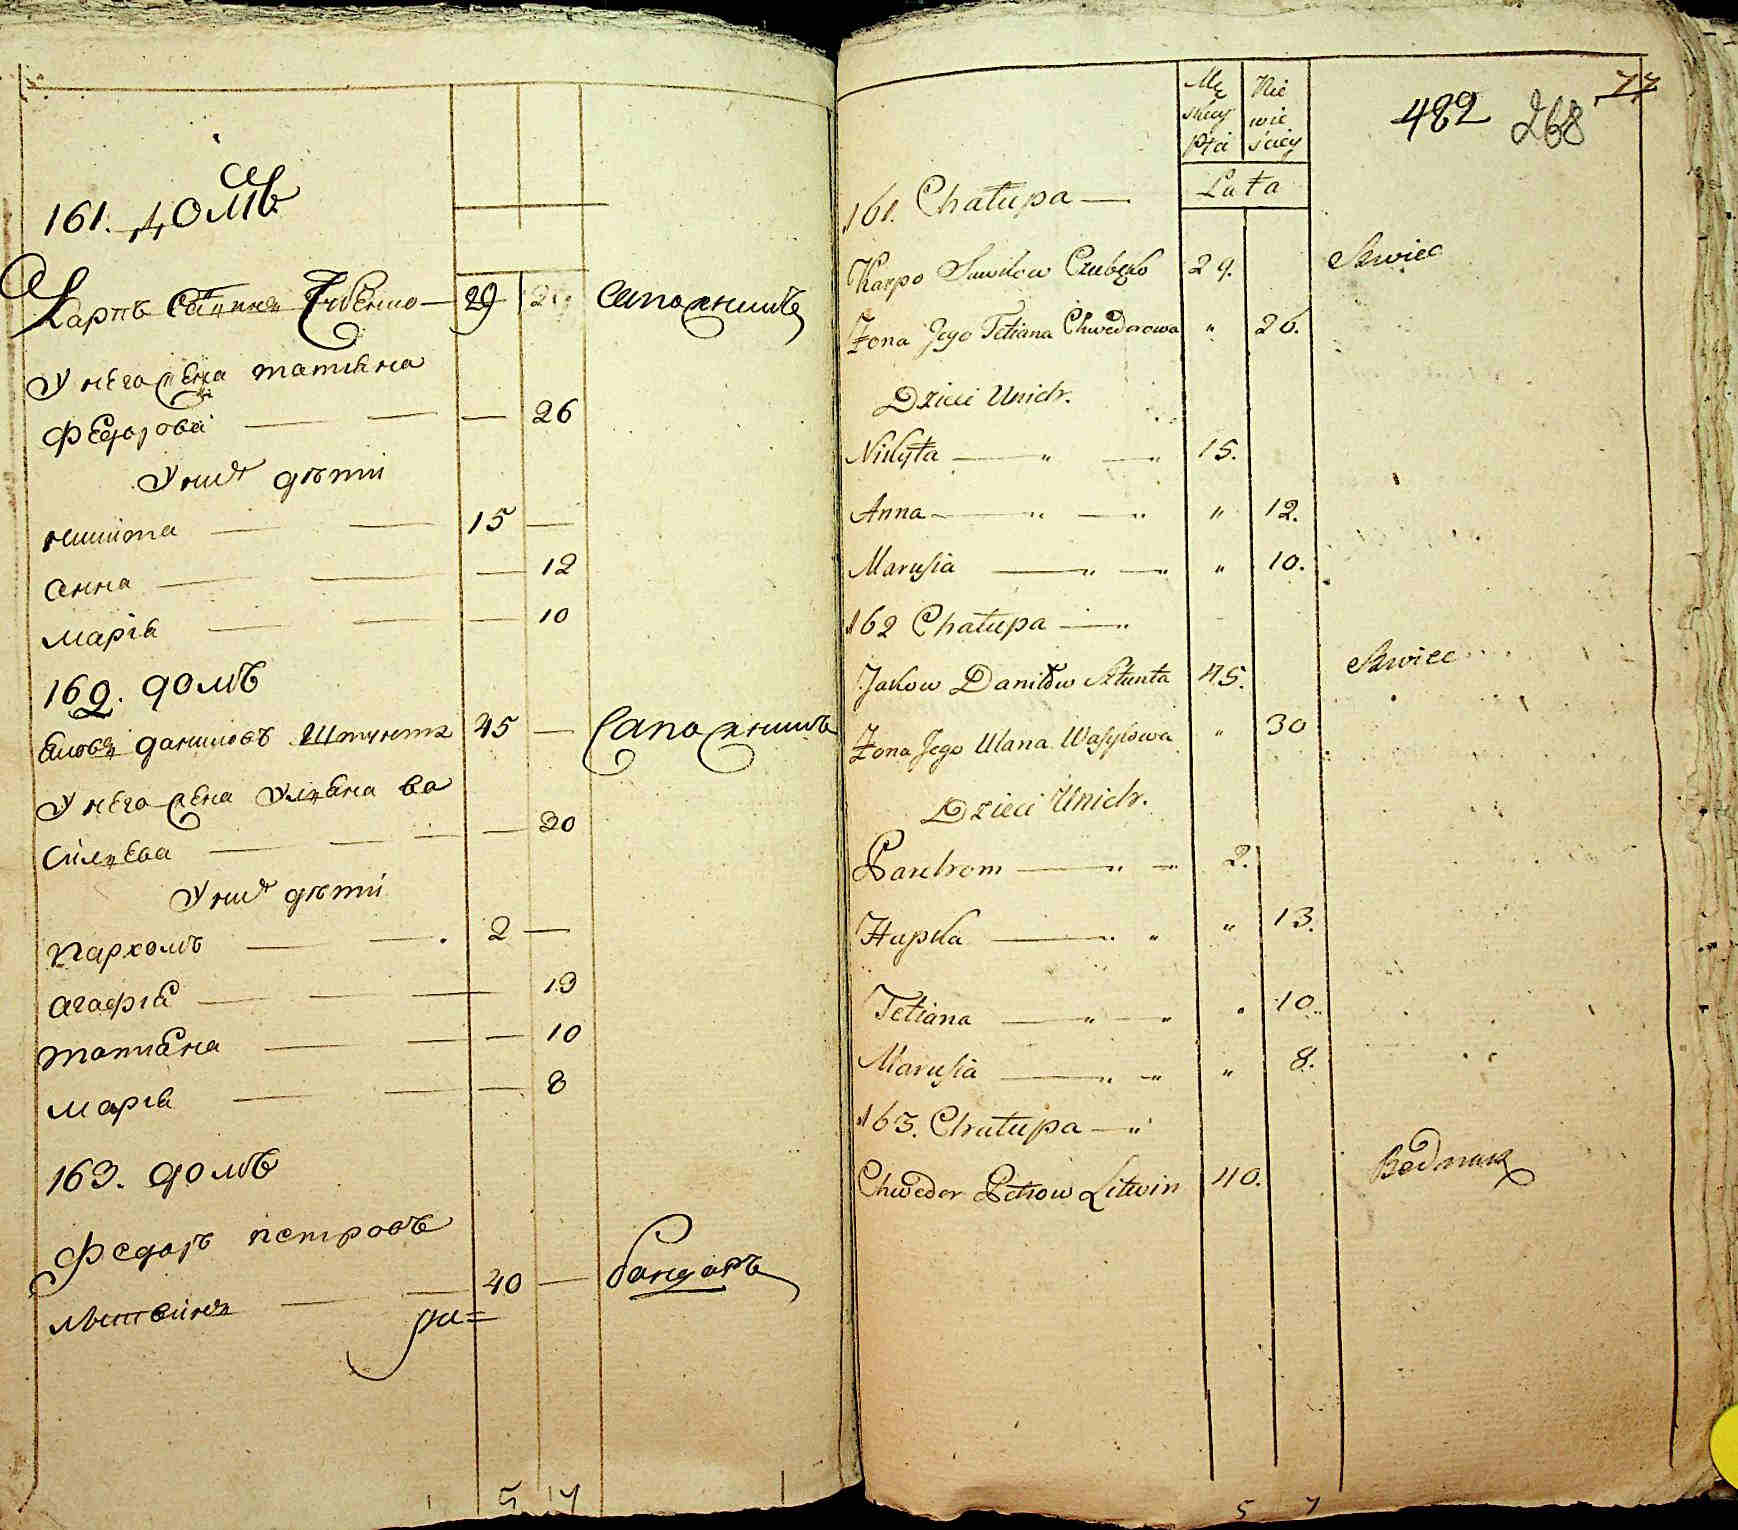 161. домъ
Карпъ Савинъ Чубенко — 29 сапожникъ
У него жена татияна
Федорова — — — 26
У них дѣти
никита — — 15 —
анна — — — 12
марія — — — 10
162. домъ
Яковъ даниловъ Штунта 45 — Сапожникъ
У него жена Улияна ва
сильева — — — 30
У них дѣти
пархомъ — — 2 —
агафія — — — 13
татияна — — — 10
марія — — — 8
163. домъ
Федоръ петровъ
литвинъ — — 40 — бондаръ
5 7
Mę Nie
skiey wie
Płci ściey
Lata
482 268 77
161. Chałupa —
Karpo Sawikow Czubeko 29. Szwiec
Żona Jego Tetiana Chwedorowa " 26.
Dzieci Unich.
Nikyta — " — " 15.
Anna — " — " " 12.
Marusia — " — " " 10.
162 Chałupa — "
Jakow Daniłow Sztunta 45. Szwiec
Żona Jego Ulana Wasylowa " 30
Dzieci Unich.
Parchom — " — " 2.
Hapka — " " " 13.
Tetiana — " — " " 10.
Marusia — " — " " 8.
163. Chałupa — "
Chwedor Petrow Litwin 40. Bednarz
5 7